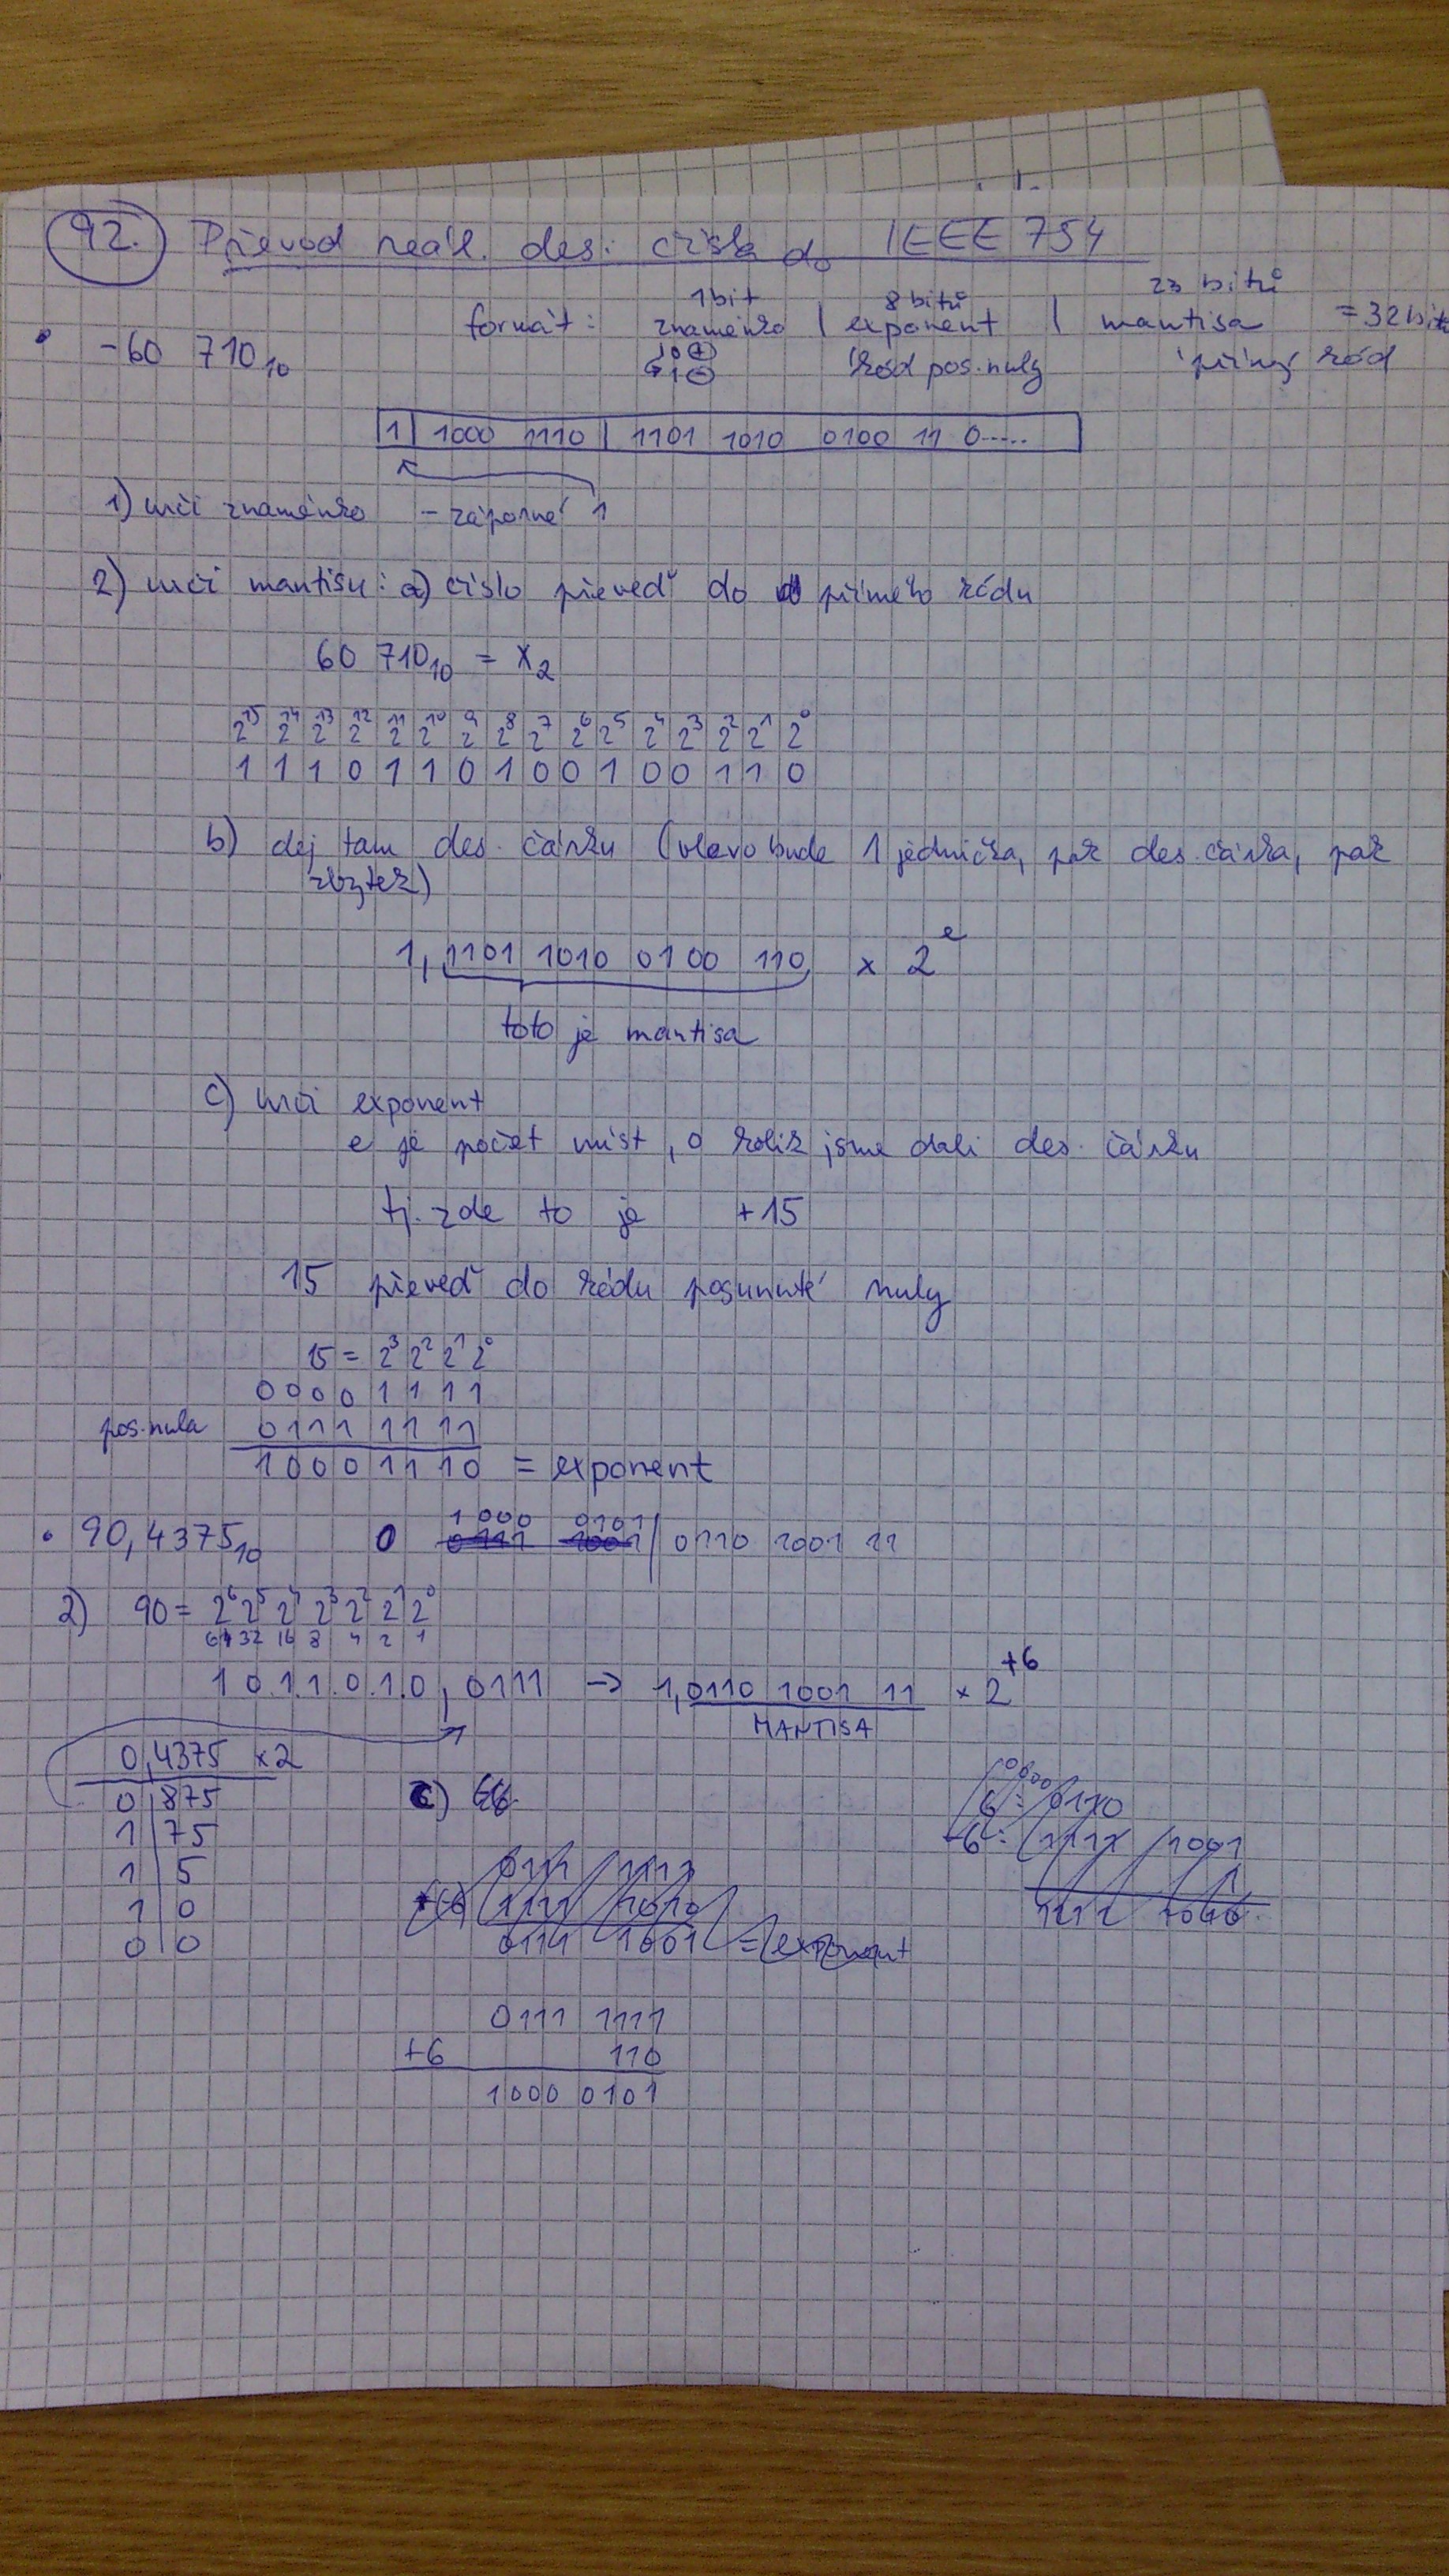 92. Převod reál. des. čísla do IEEE 754
1bit 8 bitů 23 bitů
formát: znaménko | exponent | mantisa = 32 bit
0 + kód pos. nuly přímý kód
1 -
• -60 710₁₀
1 | 1000 1110 | 1101 1010 0100 11 0.....
1) urči znaménko - záporné 1
2) urči mantisu: a) číslo převeď do přímého kódu
60 710₁₀ = x₂
2¹⁵ 2¹⁴ 2¹³ 2¹² 2¹¹ 2¹⁰ 2⁹ 2⁸ 2⁷ 2⁶ 2⁵ 2⁴ 2³ 2² 2¹ 2⁰
1 1 1 0 1 1 0 1 0 0 1 0 0 1 1 0
b) dej tam des. čárku (vlevo bude 1 jednička, pak des. čárka, pak
zbytek)
1, 1101 1010 0100 110 x 2ᵉ
toto je mantisa
c) urči exponent
e je počet míst, o kolik jsme dali des. čárku
tj. zde to je +15
15 převeď do kódu posunuté nuly
15 = 2³ 2² 2¹ 2⁰
0 0 0 0 1 1 1 1
pos. nula 0 1 1 1 1 1 1 1
1 0 0 0 1 1 1 0 = exponent
1 000 0101
• 90,4375₁₀ 0 0111 1001 | 0110 1001 11
2) 90 = 2⁶ 2⁵ 2⁴ 2³ 2² 2¹ 2⁰
64 32 16 8 4 2 1
1 0.1.1.0.1.0, 0111 → 1,0110 1001 11 x 2⁺⁶
MANTISA
0,4375 x2
0 | 875
1 | 75
1 | 5
1 | 0
0 | 0
c)
6 = 0110
-6 = 1111 1001
1
1111 1010
0111 1111
1111 1010
0111 1001 = exponent
0111 1111
+6 110
1000 0101